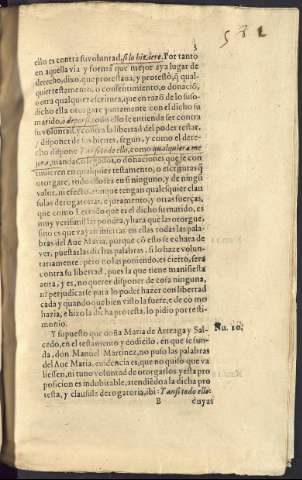 581
3
ello es contra su voluntad, si lo hiziere. Por tanto
en aquella via y forma que mejor aya lugar de
derecho, dixo, que protestaua, y protestò, q̃ qual-
quier testamento, o consentimiento, o donaciõ,
o otra qualquier escritura, que en razõ de lo suso-
dicho ella otorgare juntamente con el dicho su
marido, o de por si, todo ello se entienda ser contra
su voluntad, y contra la libertad del poder testar,
y disponer de sus bienes, seguir, y como el dere-
cho dispone. Y ansi todo ello, como qualquiera me
jora, manda o legados, o donaciones que se con
tuuieren en qualquier testamento, o escrituras q̃
otorgare, todo ello sea en si ninguno, y de ningũ
valor, ni efecto, aunque tengan qualesquier clau
sulas derogatorias, e juramento, y otras fuerças,
que como Letrado que es el dicho su marido, es
muy verisimil las pondra, y hará que las otorgue,
sino es que vayan insertas en ellas todas las pala-
bras del Aue Maria, porque cõ esto se echarà de
ver, puestas las dichas palabras, si lo haze volun-
tariamente: pero no las poniendo, es cierto, serà
contra su libertad, pues la que tiene manifiesta
aora, y es, no querer disponer de cosa ninguna,
ni perjudicarse para lo poder hazer con libertad
cada y quando que bien visto la fuere, e de co mo
hazia, e hizo la dicha protesta, lo pidio por testi-
monio.
Y supuesto que doña Maria de Arteaga y Sal-
cedo, en el testamento y codicilo, en que se fun-
da, don Manuel Martinez, no puso las palabras
del Aue Maria, euidencia es, que no quiso que va
liessen, ni tuuo voluntad de otorgarlos, y esta pro
posicion es indubitable, atendiẽdo a la dicha pro
testa, y clausula derogatoria, ibi: Y ansi todo ello
Nu. 10.
B cuyas